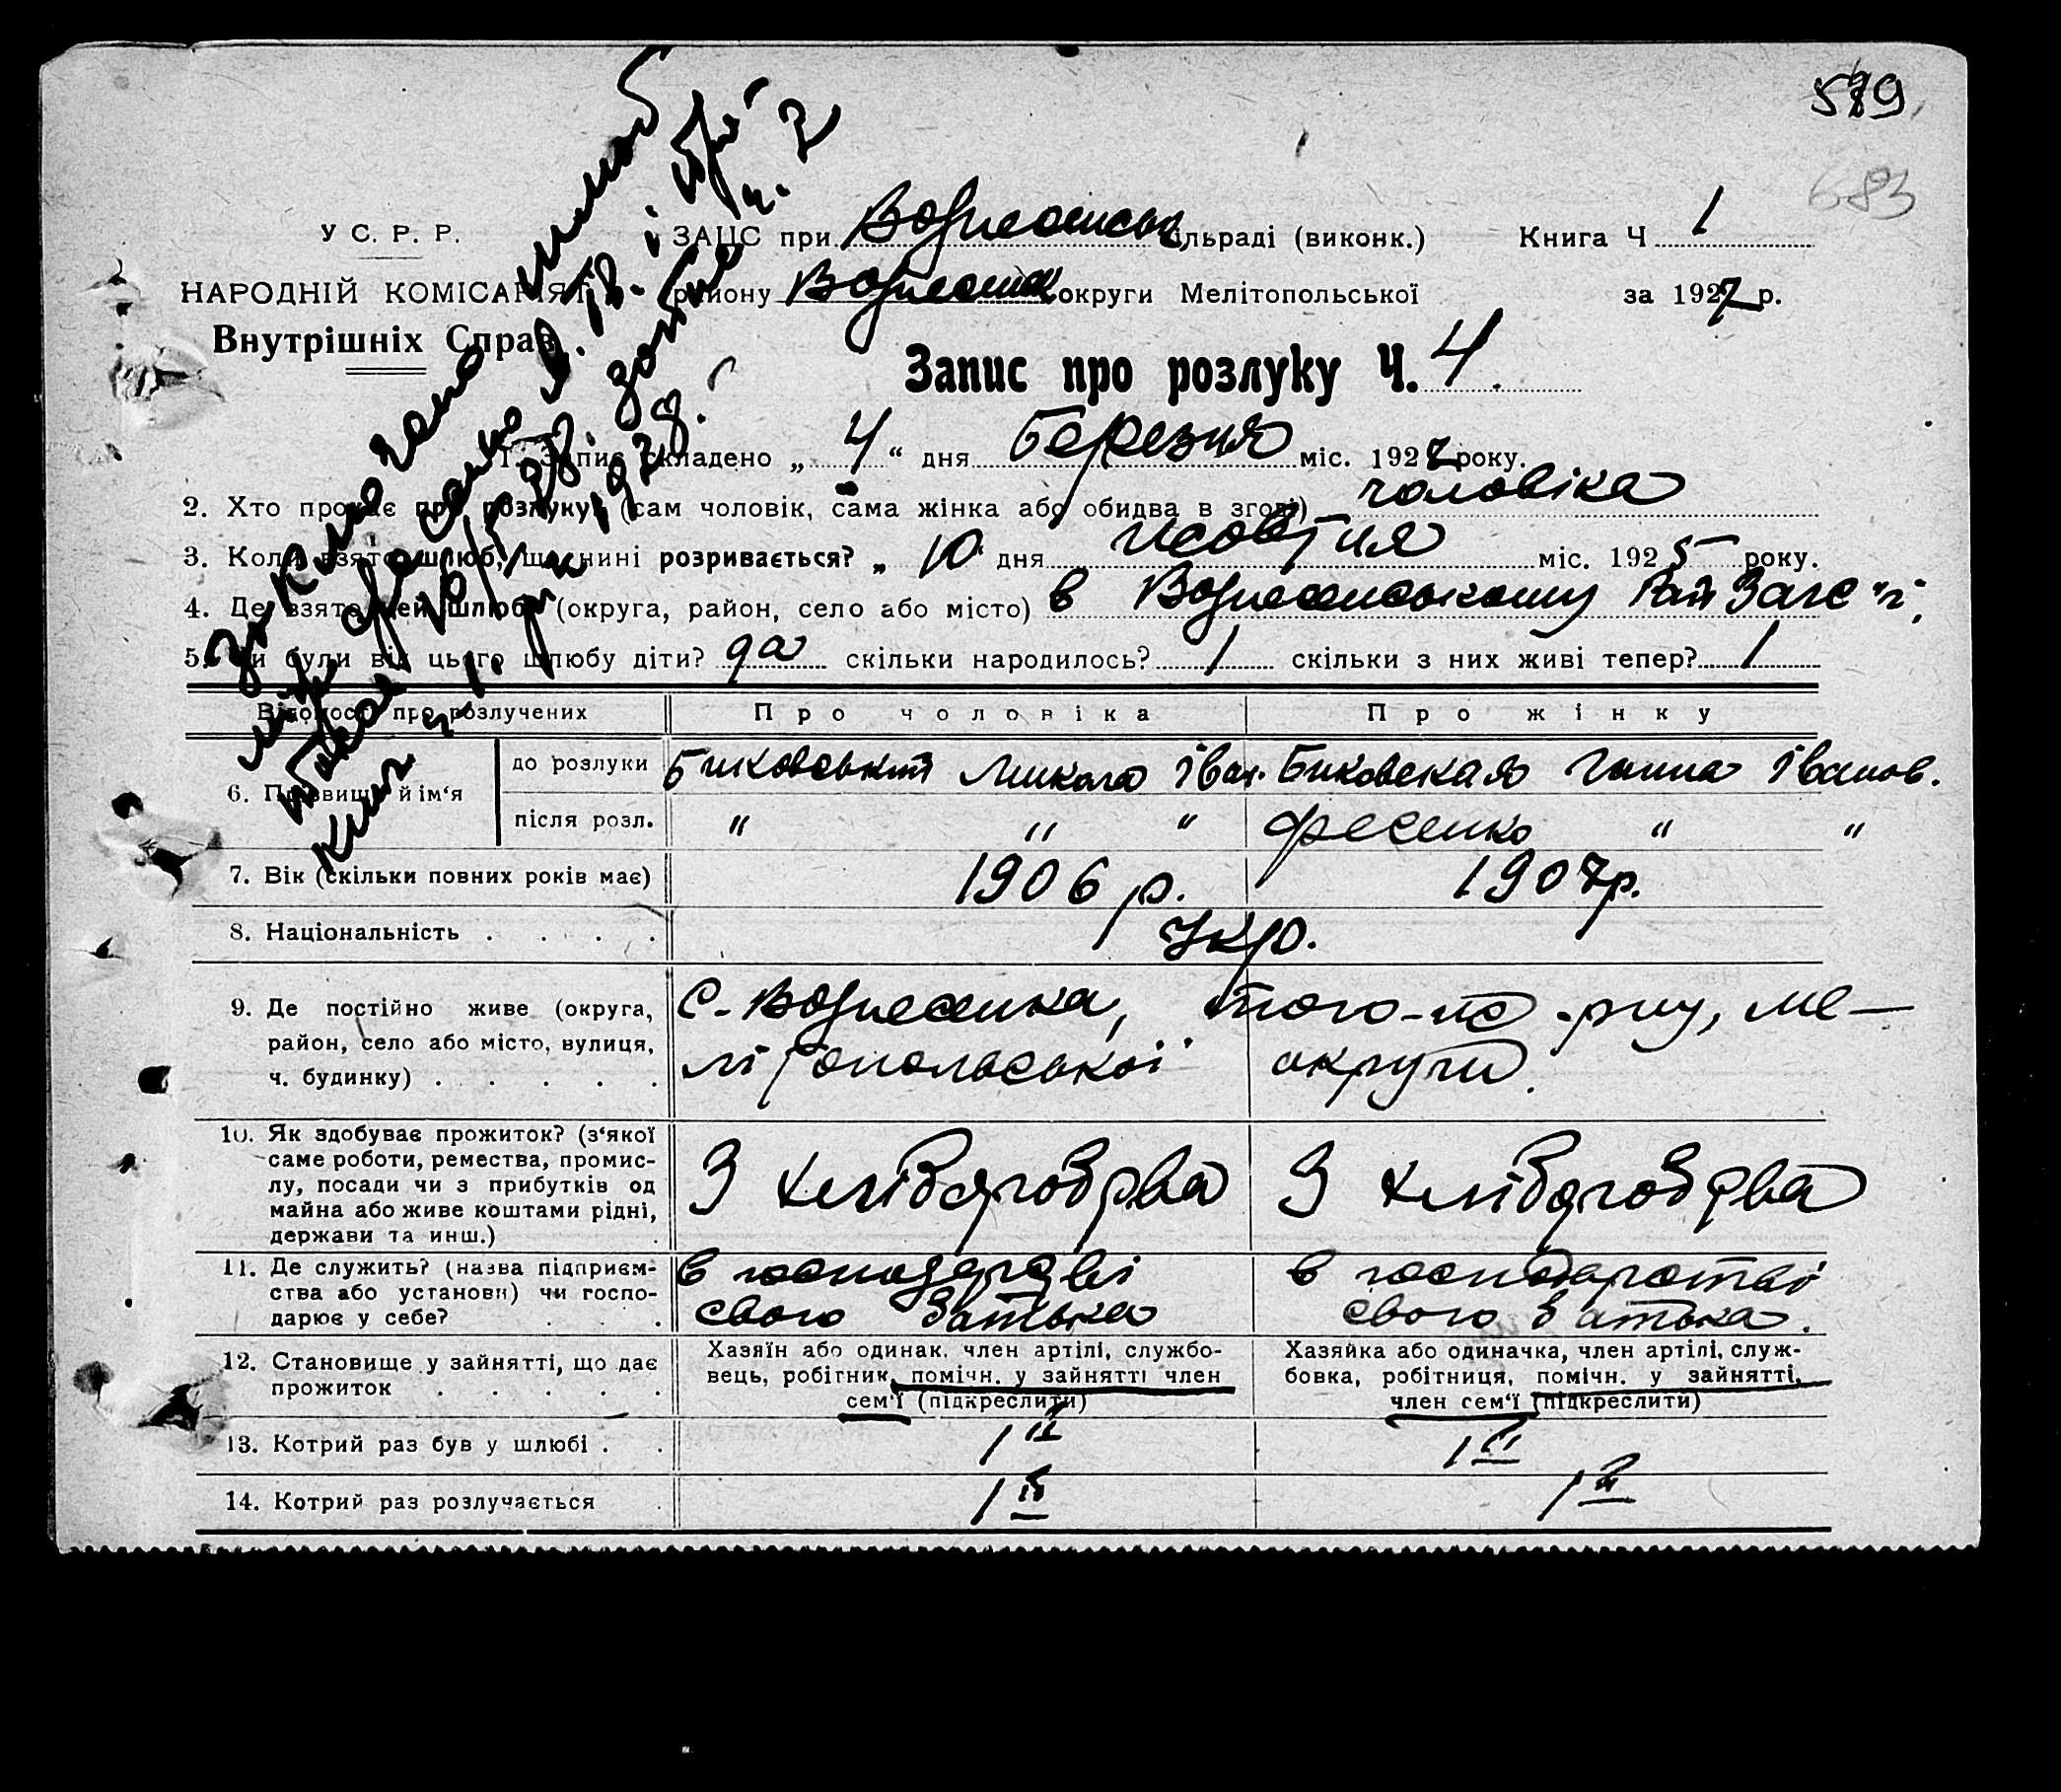 589
683
У С. Р. Р.
НАРОДНІЙ КОМІСАРІЯТ
Внутрішніх Справ
ЗАЦС при Вознесенськ сільраді (виконк.) Книга Ч 1
району Вознесенск округи Мелітопольської за 1927 р.
Запис про розлуку Ч. 4.
1. Запис складено „ 4 “ дня Березня міс. 1927 року.
2. Хто прохає про розлуку? (сам чоловік, сама жінка або обидва в згоді) чоловіка
3. Коли взято шлюб, що нині розривається? „ 10 дня жовтня міс. 1925 року.
4. Де взято цей шлюб? (округа, район, село або місто) в Вознесенському Рай Загс'і,
5. Чи були від цього шлюбу діти? да скільки народилось? 1 скільки з них живі тепер? 1
шлюб
і
ч. 2
1928
Відомості про розлучених Про чоловіка Про жінку
6. Прізвище й ім‘я
до розлуки Биковський Микола Іван. Биковская Ганна Іванов.
після розл. " " " Фесенко " "
7. Вік (скільки повних років має) 1906 р. 1907 р.
8. Національність . . . . Укр.
9. Де постійно живе (округа, район, село або місто, вулиця, ч. будинку) . . . . . с. Вознесенка, того-ж р-ну, Ме-
літопольської округи.
10. Як здобуває прожиток? (з‘якої саме роботи, ремества, промис-
лу, посади чи з прибутків од
майна або живе коштами рідні,
держави та инш.)
З хліборобства З хліборобства
11. Де служить? (назва підприєм-
ства або установи) чи госпо-
дарює у себе? . . .
в господарстві свого батька
в господарстві свого батька.
12. Становище у зайнятті, що дає
прожиток . . . . .
Хазяїн або одинак. член артілі, службо-
вець, робігник, помічн. у зайнятті член
сем‘ї (підкреслити)
Хазяйка або одиначка, член артілі, служ-
бовка, робітниця, помічн. у зайнятті,
член сем‘ї (підкреслити)
13. Котрий раз був у шлюбі . . 1й 1й
14. Котрий раз розлучається . 1й 1й